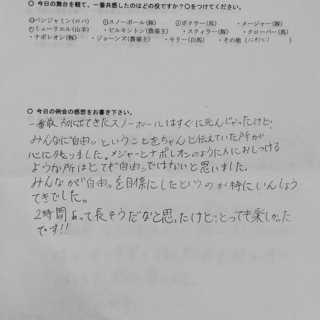 ○ 今日の舞台を観て、一番共感したのはどの役ですか？○をつけてください。
・ベンジャミン(ロバ) ・スノーボール(豚) ・ボクサー(馬) ・メージャー(豚)
・ミュリエル(山羊) ・ピルキントン(農場主) ・スクィラー(豚) ・クローバー(馬)
・ナポレオン(豚) ・ジョーンズ(農場主) ・モリー(白馬) ・その他(
○ 今日の例会の感想をお書き下さい。
一番最初に出てきたスノーボールはすぐに死んじゃったけど、
みんなに"自由"ということをちゃんと伝えていた所が
心に残りました。メジャーとナポレオンのように人におしつける
ような所はとても"自由"ではないと思いました。
みんなが"自由"を目標にしたというのが特にいんしょう
てきでした。
2時間あって長そうだなと思ったけど、とっても楽しかった
です!!